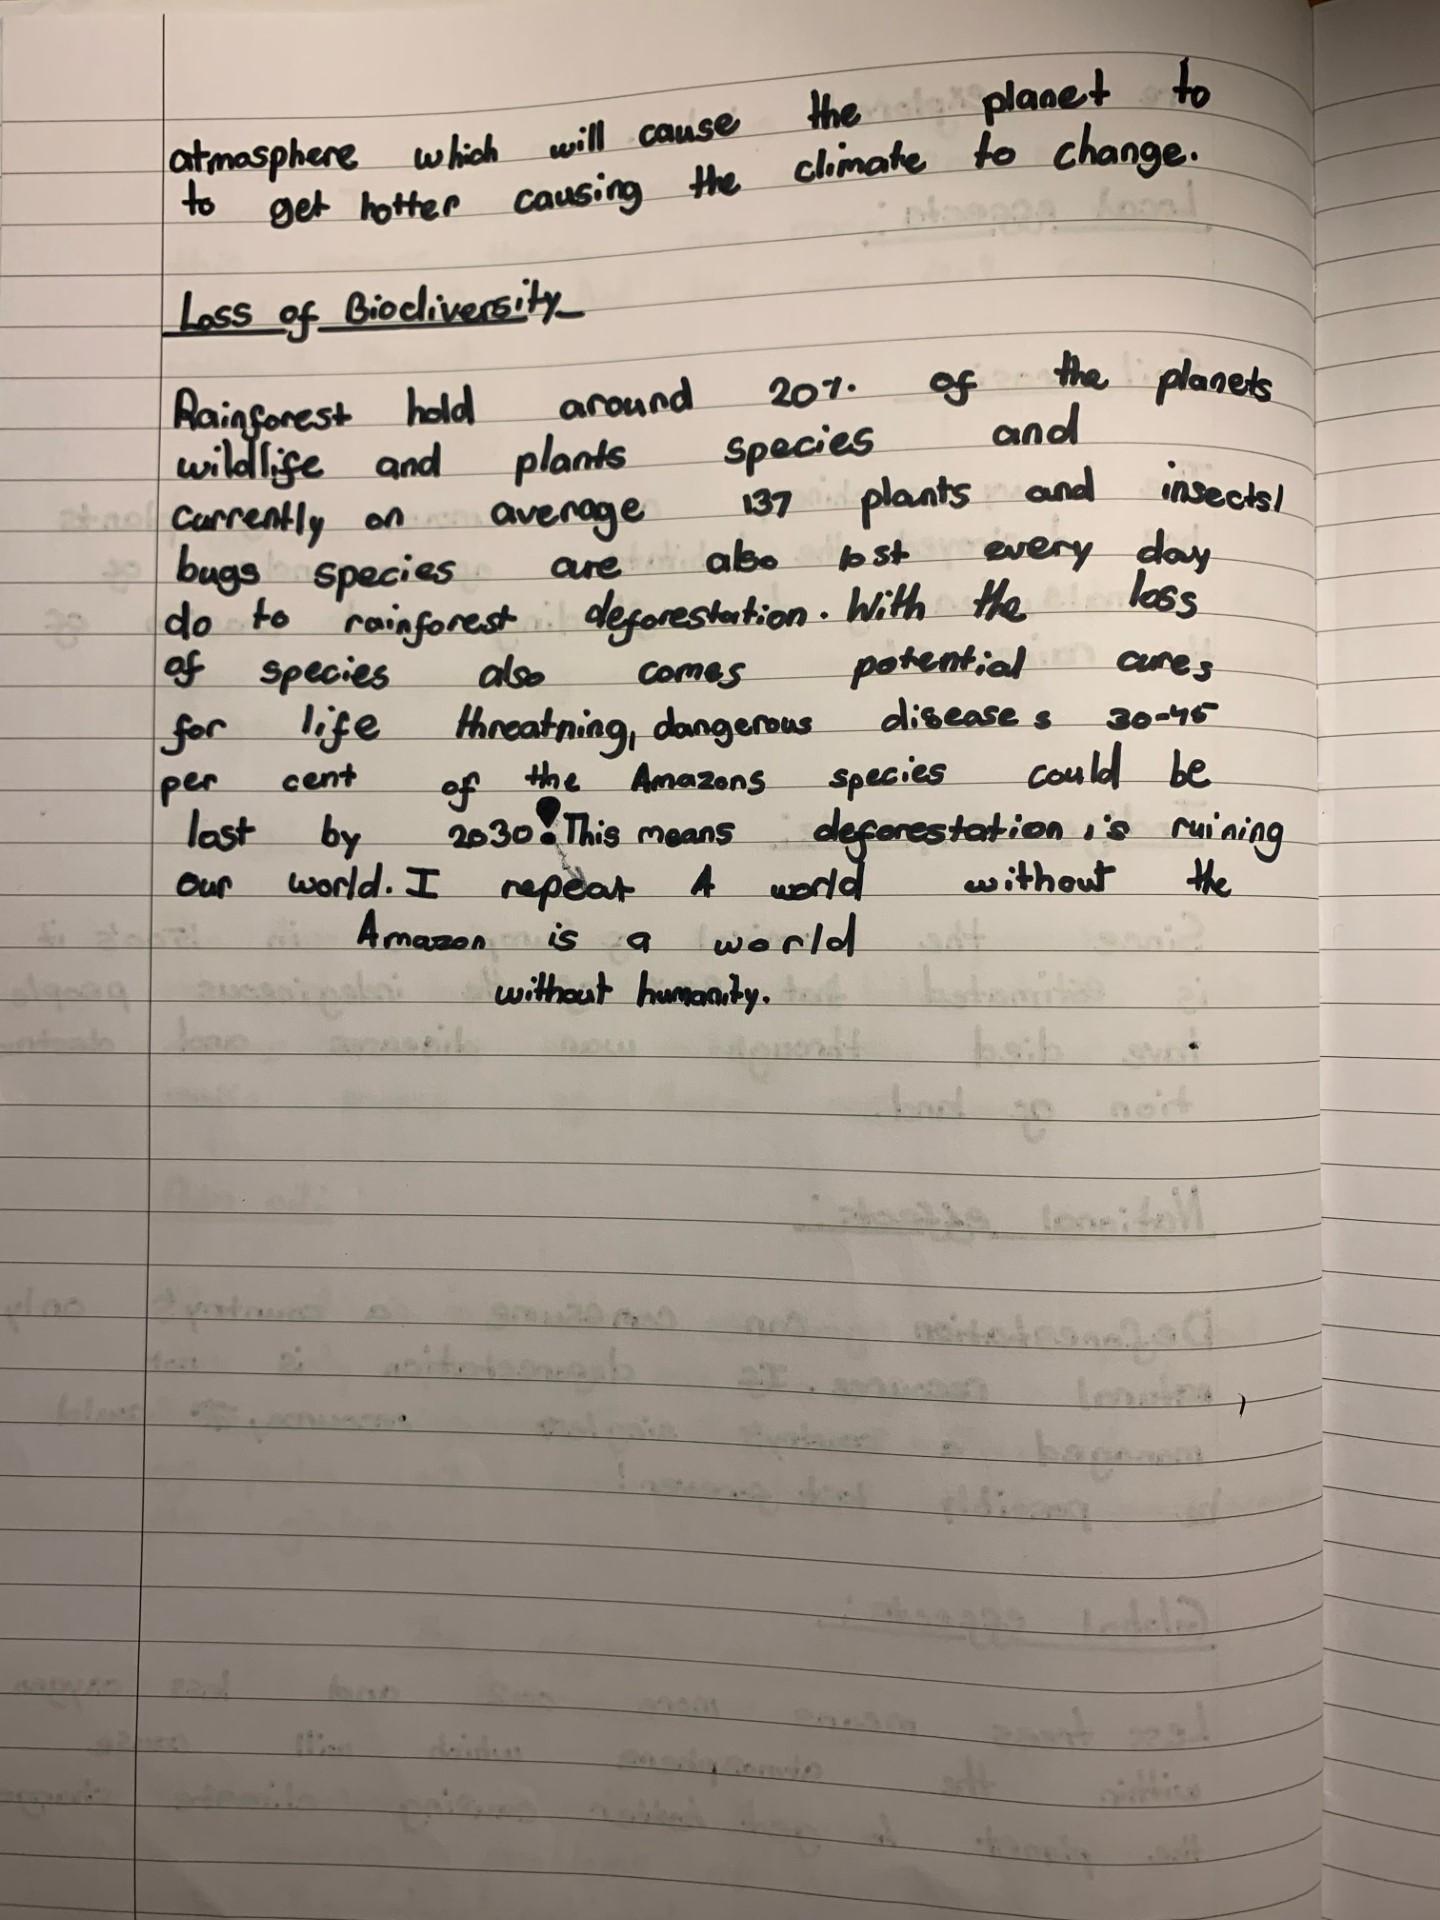 atmosphere which will cause the planet to
to get hotter causing the climate to change.
Loss of Biodiversity
Rainforest hold around 20% of the planets
wildlife and plants species and
currently on average 137 plants and insects/
bugs species are also lost every day
do to rainforest deforestation. With the loss
of species also comes potential cures
for life threatning, dangerous diseases 30-45
per cent of the Amazons species could be
lost by 2030! This means deforestation is ruining
our world. I repeat A world without the
Amazon is a world
without humanity.